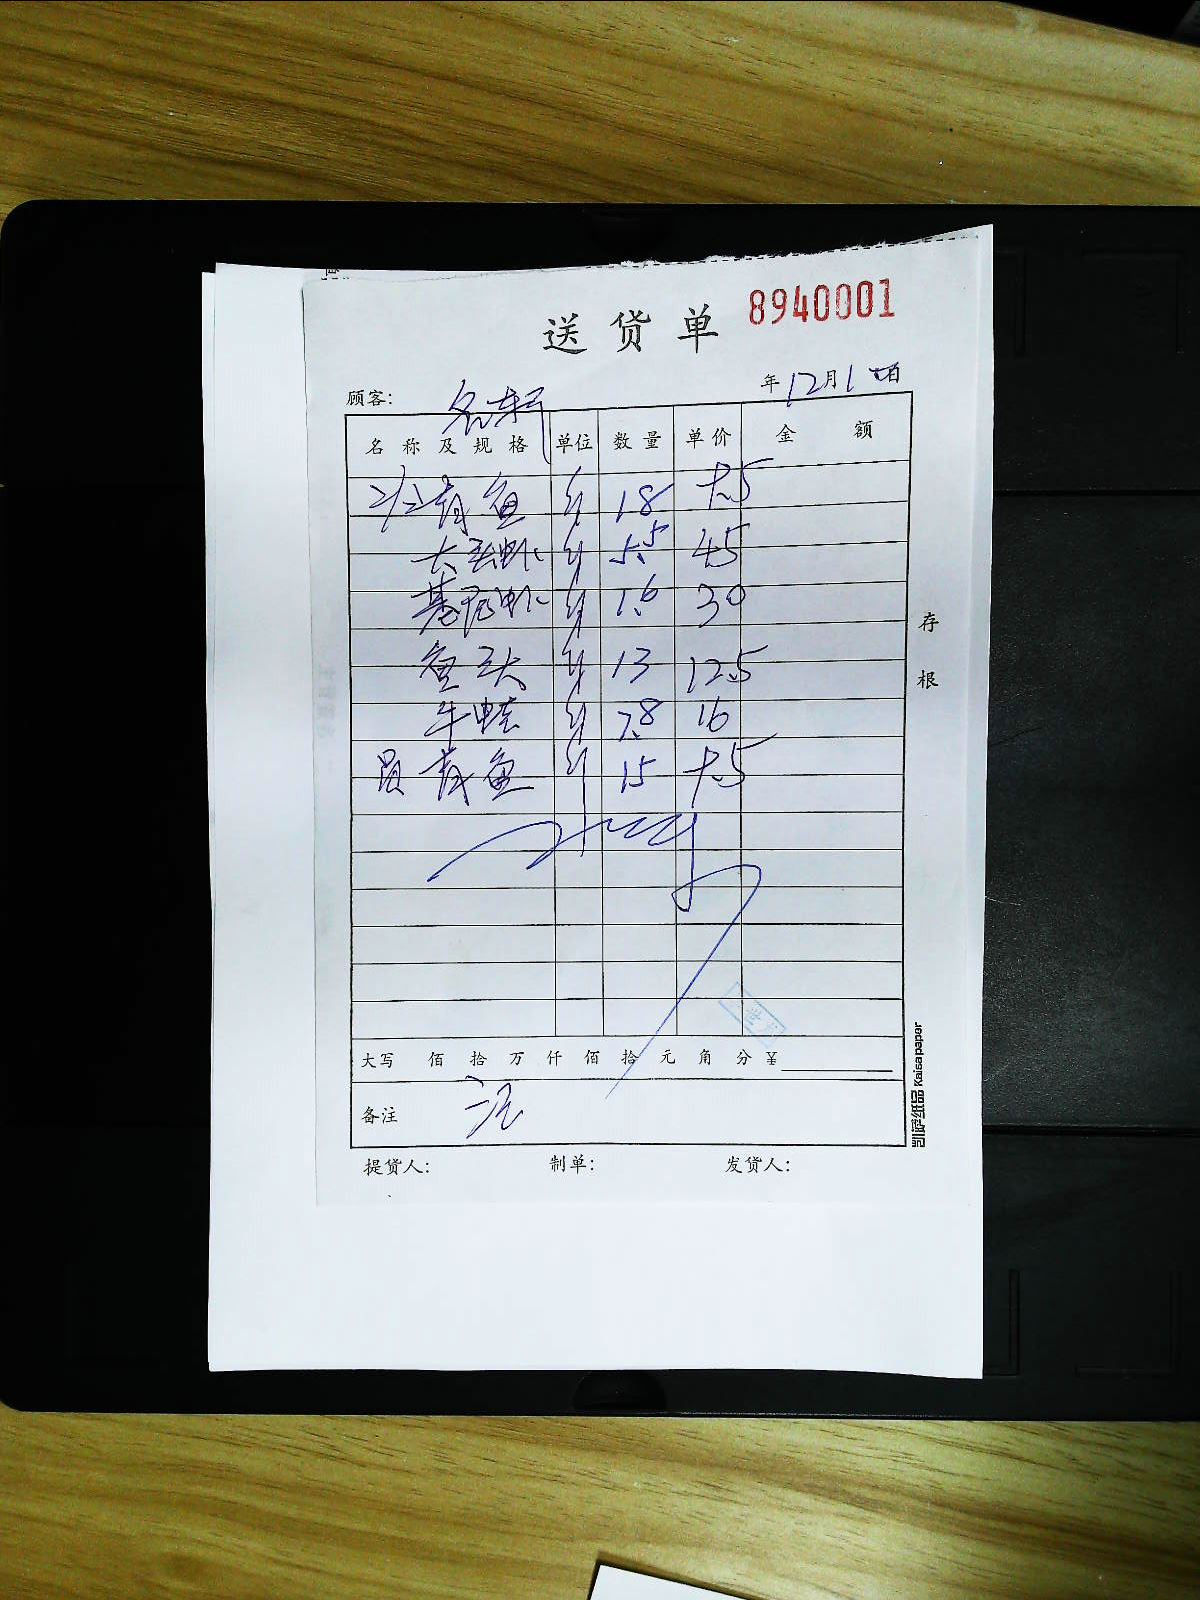 送货单 8940001
顾客: 年12月1日
名称及规格 单位 数量 单价 金额
青鱼 斤 18 7.5
大玉虾 斤 5.5 45
基尾虾 斤 1.6 30
鱼头 斤 13 12.5
牛蛙 斤 7.8 16
员 青鱼 斤 15 7.5
大写 佰 拾 万 仟 佰 拾 元 角 分 ¥
备注
提货人: 制单: 发货人:
存根
凯萨纸品 Kaisa paper